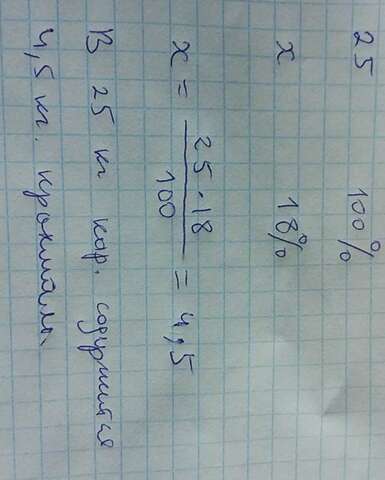 25 100%
x 18%
x = 25 · 18 / 100 = 4,5
В 25 кг кар. содержится
4,5 кг. крахмала.